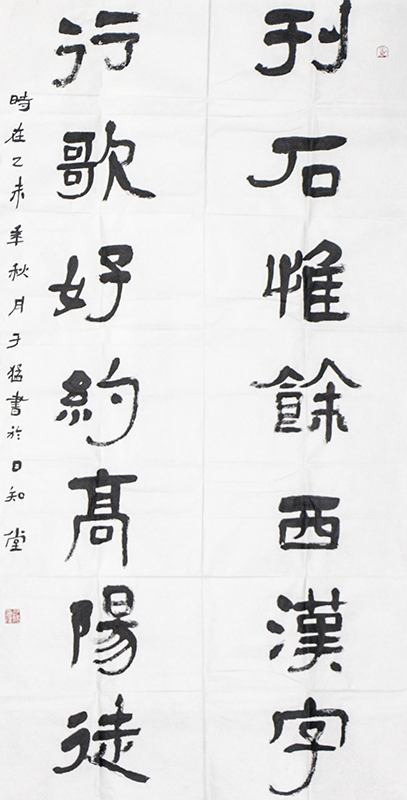 刊石惟餘西漢字
行歌好約高陽徒
時在乙未年秋月子猛書於日知堂